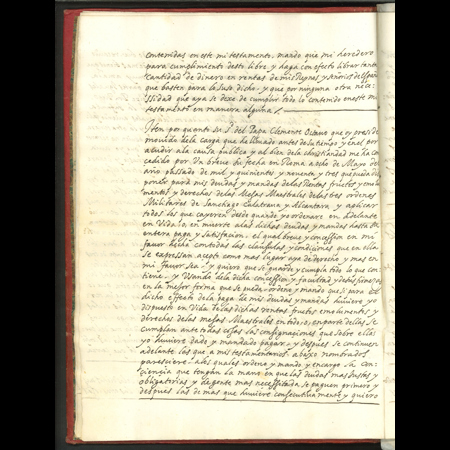 contenidas en este mi testamento, mando que mi heredero
para cumplimiento deste libre, y haga con efecto librar tanta
cantidad de dinero en rentas de mis Reynos, y señorios de España
que basten para lo suso dicho, y que por ninguna otra nece-
ssidad que aya se dexe de cumplir todo lo contenido en este mi
testamento en manera alguna
Iten por quanto su S.d del Papa Clemente Octavo que oy preside
movido de la carga que he llevado antes de su tiempo y en el por
acudir a la causa publica y al bien de la christiandad me ha con-
cedido por Un breve su fecha en Roma a ocho de Mayo del
año passado de mil y quinientos y noventa y tres que pueda dis-
poner para mis deudas y mandas de las Rentas fructos y emolu-
mentos y derechos de las Mesas Maestrales de las tres ordenes
Militares de Sanctiago Calatrava y Alcantara, y aplicar
todos los que cayeren desde quando yo ordenare en adelante
en Vida o en muerte a las dichas deudas y mandas hasta su
entera paga y satisfacion. el qual breve y concession en mi
favor hecha con todas las clausulas, y condiciones que en ella
se expressan, acepto como mas lugar aya de derecho y mas en
mi favor sea. y quiero que se guarde y cumpla todo lo que con-
tiene. y Usando de la dicha concession y facultad y destas fuerças
en la mejor forma que se pueda ordeno y mando que si para el
dicho effecto de la paga de mis deudas y mandas huviere yo
dispuesto en Vida de las dichas rentas frutos emolumentos y
derechos de las mesas Maestrales en todo o en parte dellas se
cumplan ante todas cosas las consignaciones que sobre ella
yo huviere dado y mandado pagar. y despues se continuen
adelante los que a mis testamentarios abaxo nombrados
paresciere. a los quales ordeno y mando y encargo la con-
ciencia que tengan la mano en que las deudas mas justas y
obligatorias y de gente mas necessitada se paguen primero y
despues las demas que huviere consecutivamente, y quiero